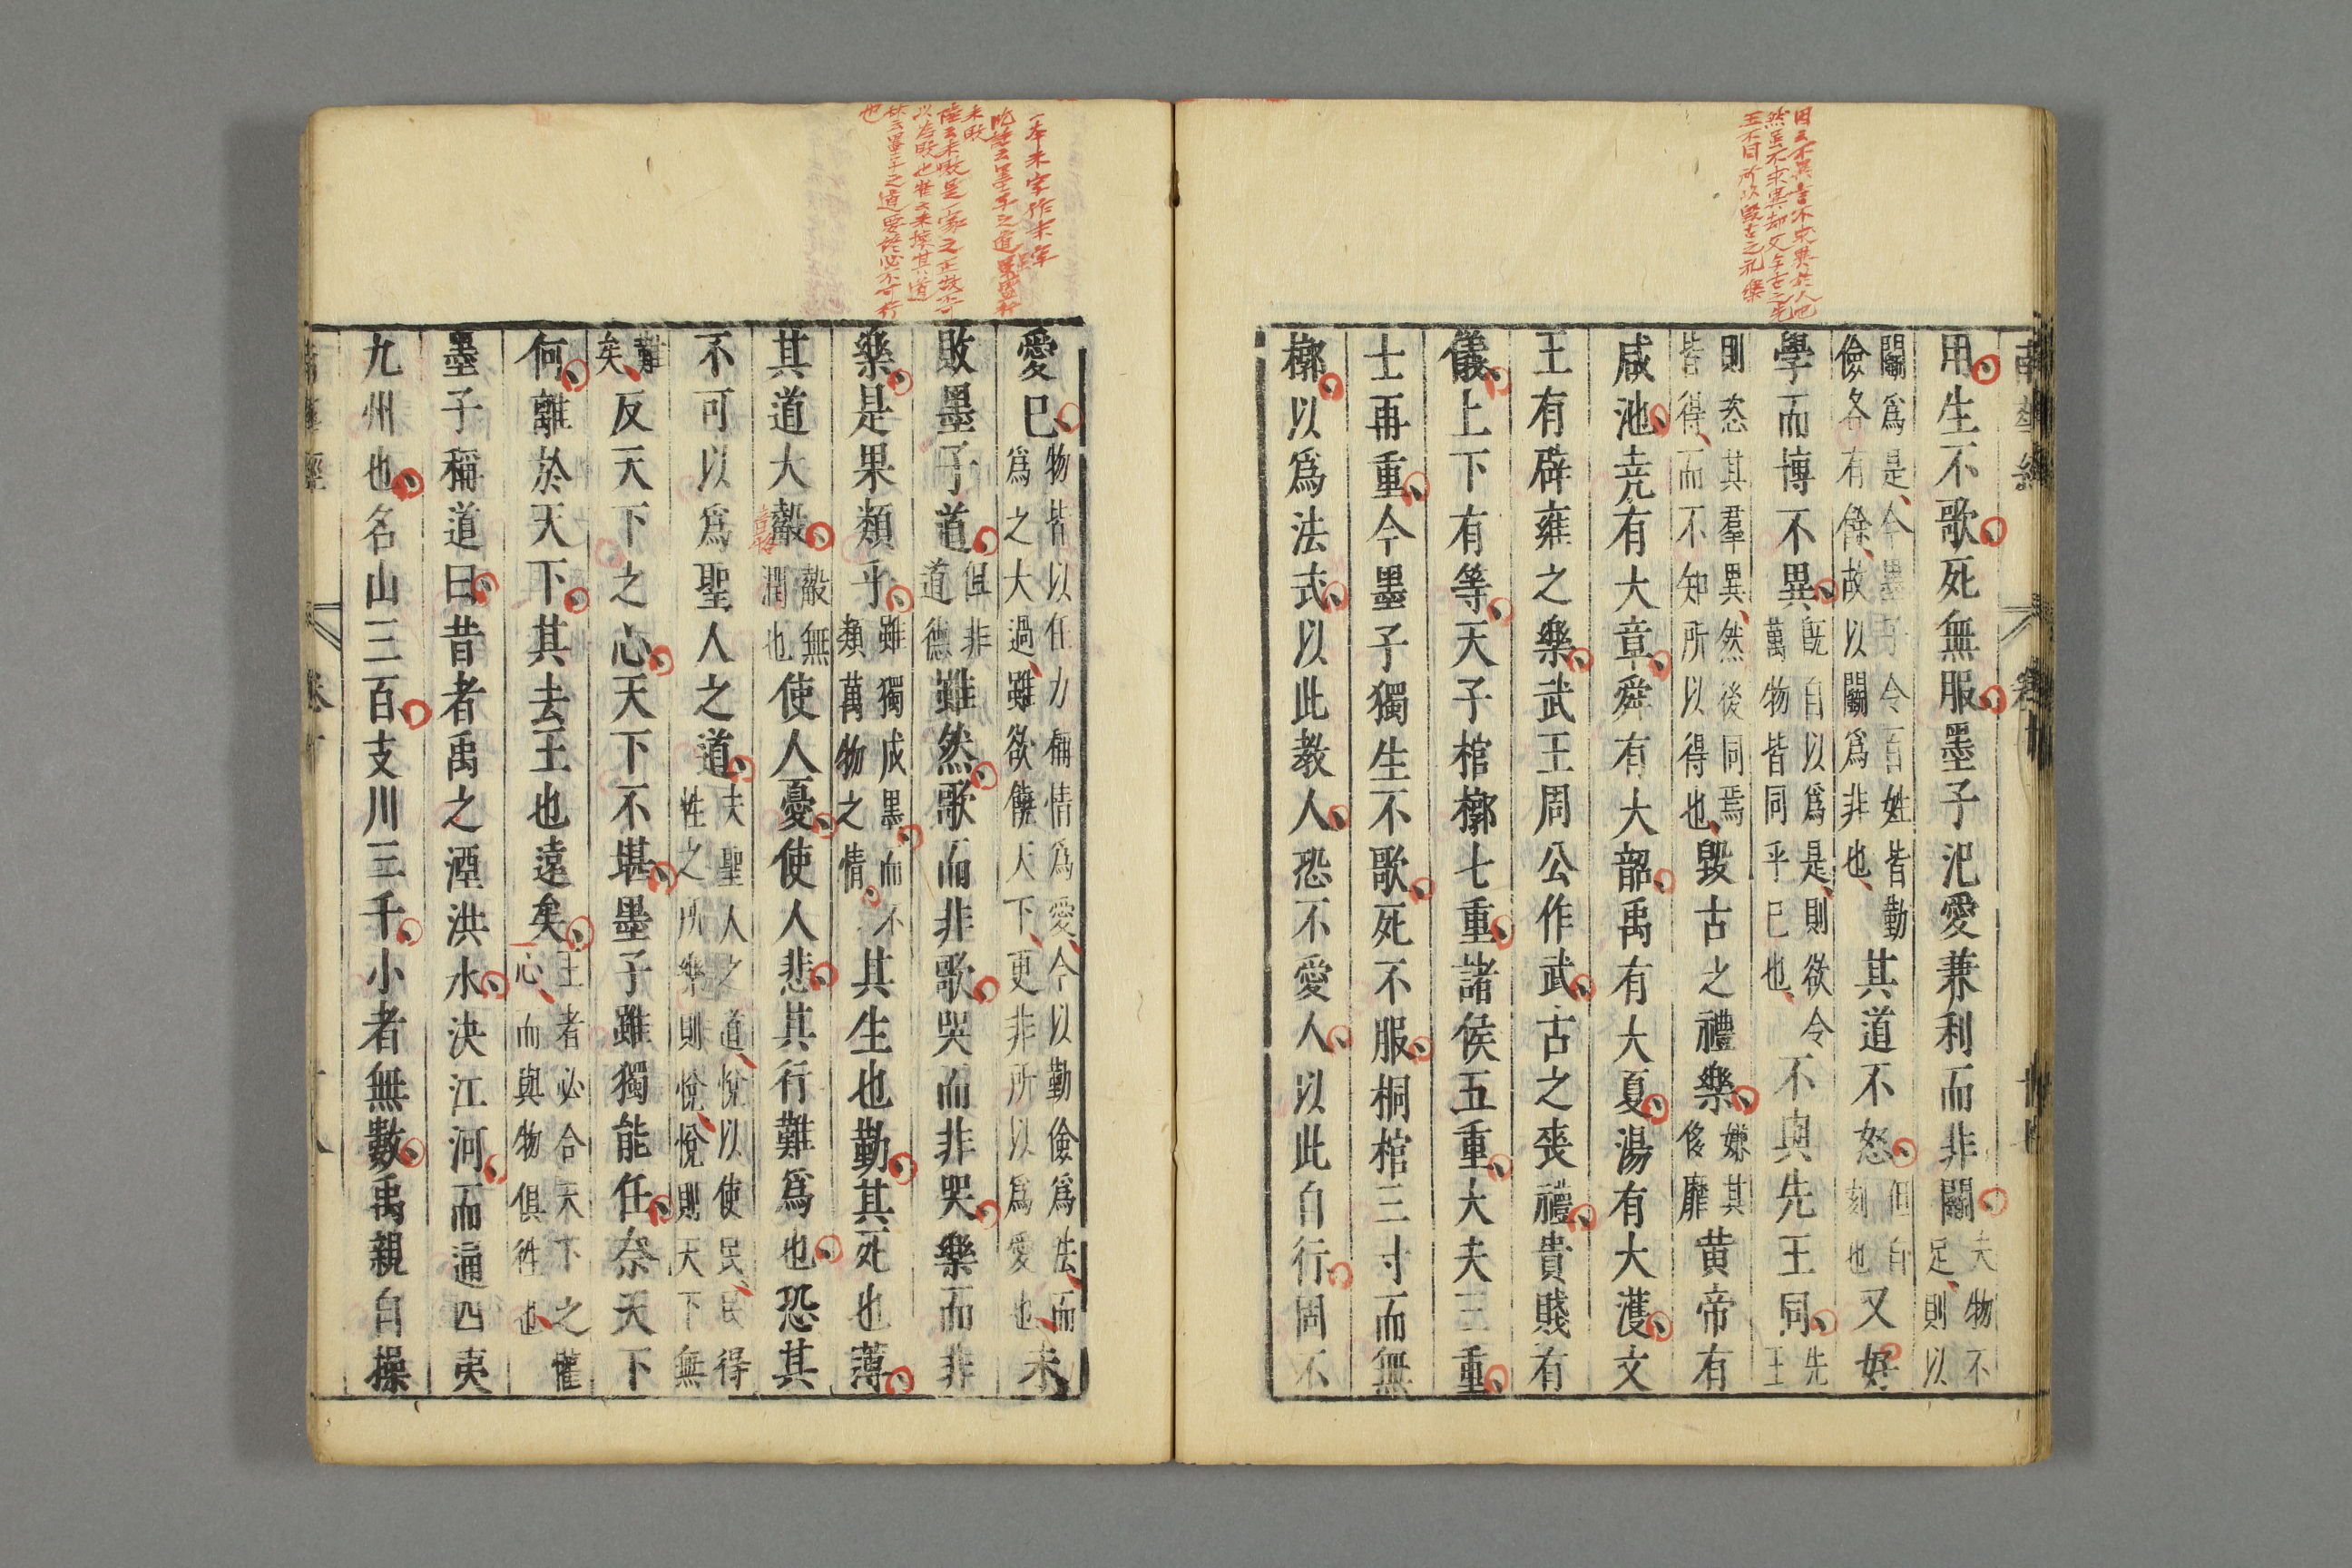 用生不歌死無服墨子汜愛兼利而非鬭夫物不足則以
鬭爲是今墨子令百姓皆勤儉各有餘故以鬭爲非也其道不怒但自刻也又好
學而博不異既自以爲是則欲令萬物皆同乎已也不與先王同先王
則恣其羣異然後同焉皆得而不知所以得也毀古之禮樂嫌其侈靡黃帝有
咸池尭有大章舜有大韶禹有大夏湯有大濩文
王有辟雍之樂武王周公作武古之喪禮貴賤有
儀上下有等天子棺槨七重諸侯五重大夫三重
士再重今墨子獨生不歌死不服桐棺三寸而無
槨以爲法式以此教人恐不愛人以此自行固不
一本未字作末字
愛已物皆以任力稱情爲愛今以勤儉爲法而爲之大過雖欲饒天下更非所以爲愛也未
敗墨子道但非道德雖然歌而非歌哭而非哭樂而非
樂是果類乎雖獨成墨而不類萬物之情其生也勤其死也薄
其道大觳觳無潤也使人憂使人悲其行難爲也恐其
不可以爲聖人之道夫聖人之道悅以使民民得性之所樂則悅悅則天下無
難矣反天下之心天下不堪墨子雖獨能任奈天下
何離於天下其去王也遠矣王者必合天下之懽心而與物俱徃也
墨子稱道曰昔者禹之湮洪水決江河而通四夷
九州也名山三百支川三千小者無數禹親自操